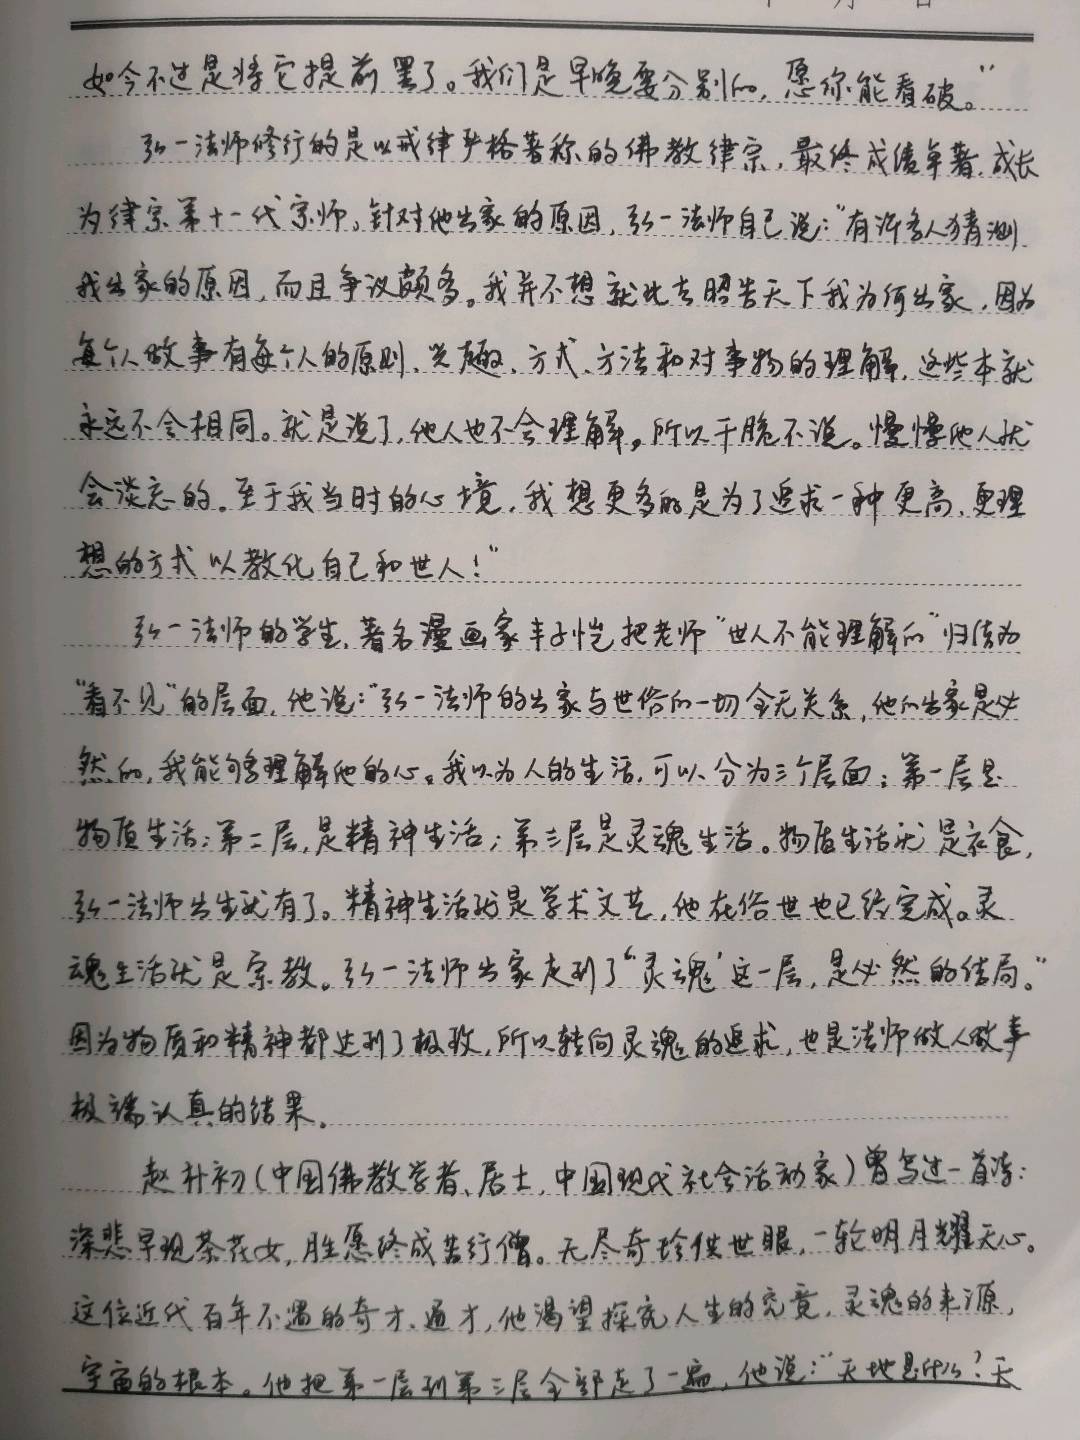 如今不过是将它提前罢了。我们是早晚要分别的，愿你能看破。"
弘一法师修行的是以戒律严格著称的佛教律宗，最终成绩卓著，成长
为律宗第十一代宗师。针对他出家的原因，弘一法师自己说："有许多人猜测
我出家的原因，而且争议颇多。我并不想就此去昭告天下我为何出家，因为
每个人做事有每个人的原则、兴趣、方式、方法和对事物的理解，这些本就
永远不会相同。就是说了，他人也不会理解，所以干脆不说。慢慢他人就
会淡忘的。至于我当时的心境，我想更多的是为了追求一种更高、更理
想的方式以教化自己和世人！"
弘一法师的学生，著名漫画家丰子恺把老师"世人不能理解的"归结为
"看不见"的层面，他说："弘一法师的出家与世俗的一切全无关系，他的出家是必
然的，我能够理解他的心。我以为人的生活，可以分为三个层面：第一层是
物质生活；第二层，是精神生活；第三层是灵魂生活。物质生活就是衣食，
弘一法师出生就有了。精神生活就是学术文艺，他在俗世也已经完成。灵
魂生活就是宗教。弘一法师出家走到了'灵魂'这一层，是必然的结局。"
因为物质和精神都达到了极致，所以转向灵魂的追求，也是法师做人做事
极端认真的结果。
赵朴初（中国佛教学者、居士，中国现代社会活动家）曾写过一首诗：
深悲早现茶花女，胜愿终成苦行僧。无尽奇珍供世眼，一轮明月耀天心。
这位近代百年不遇的奇才、通才，他渴望探究人生的究竟，灵魂的来源，
宇宙的根本。他把第一层到第三层全部走了一遍，他说："天地是什么？天